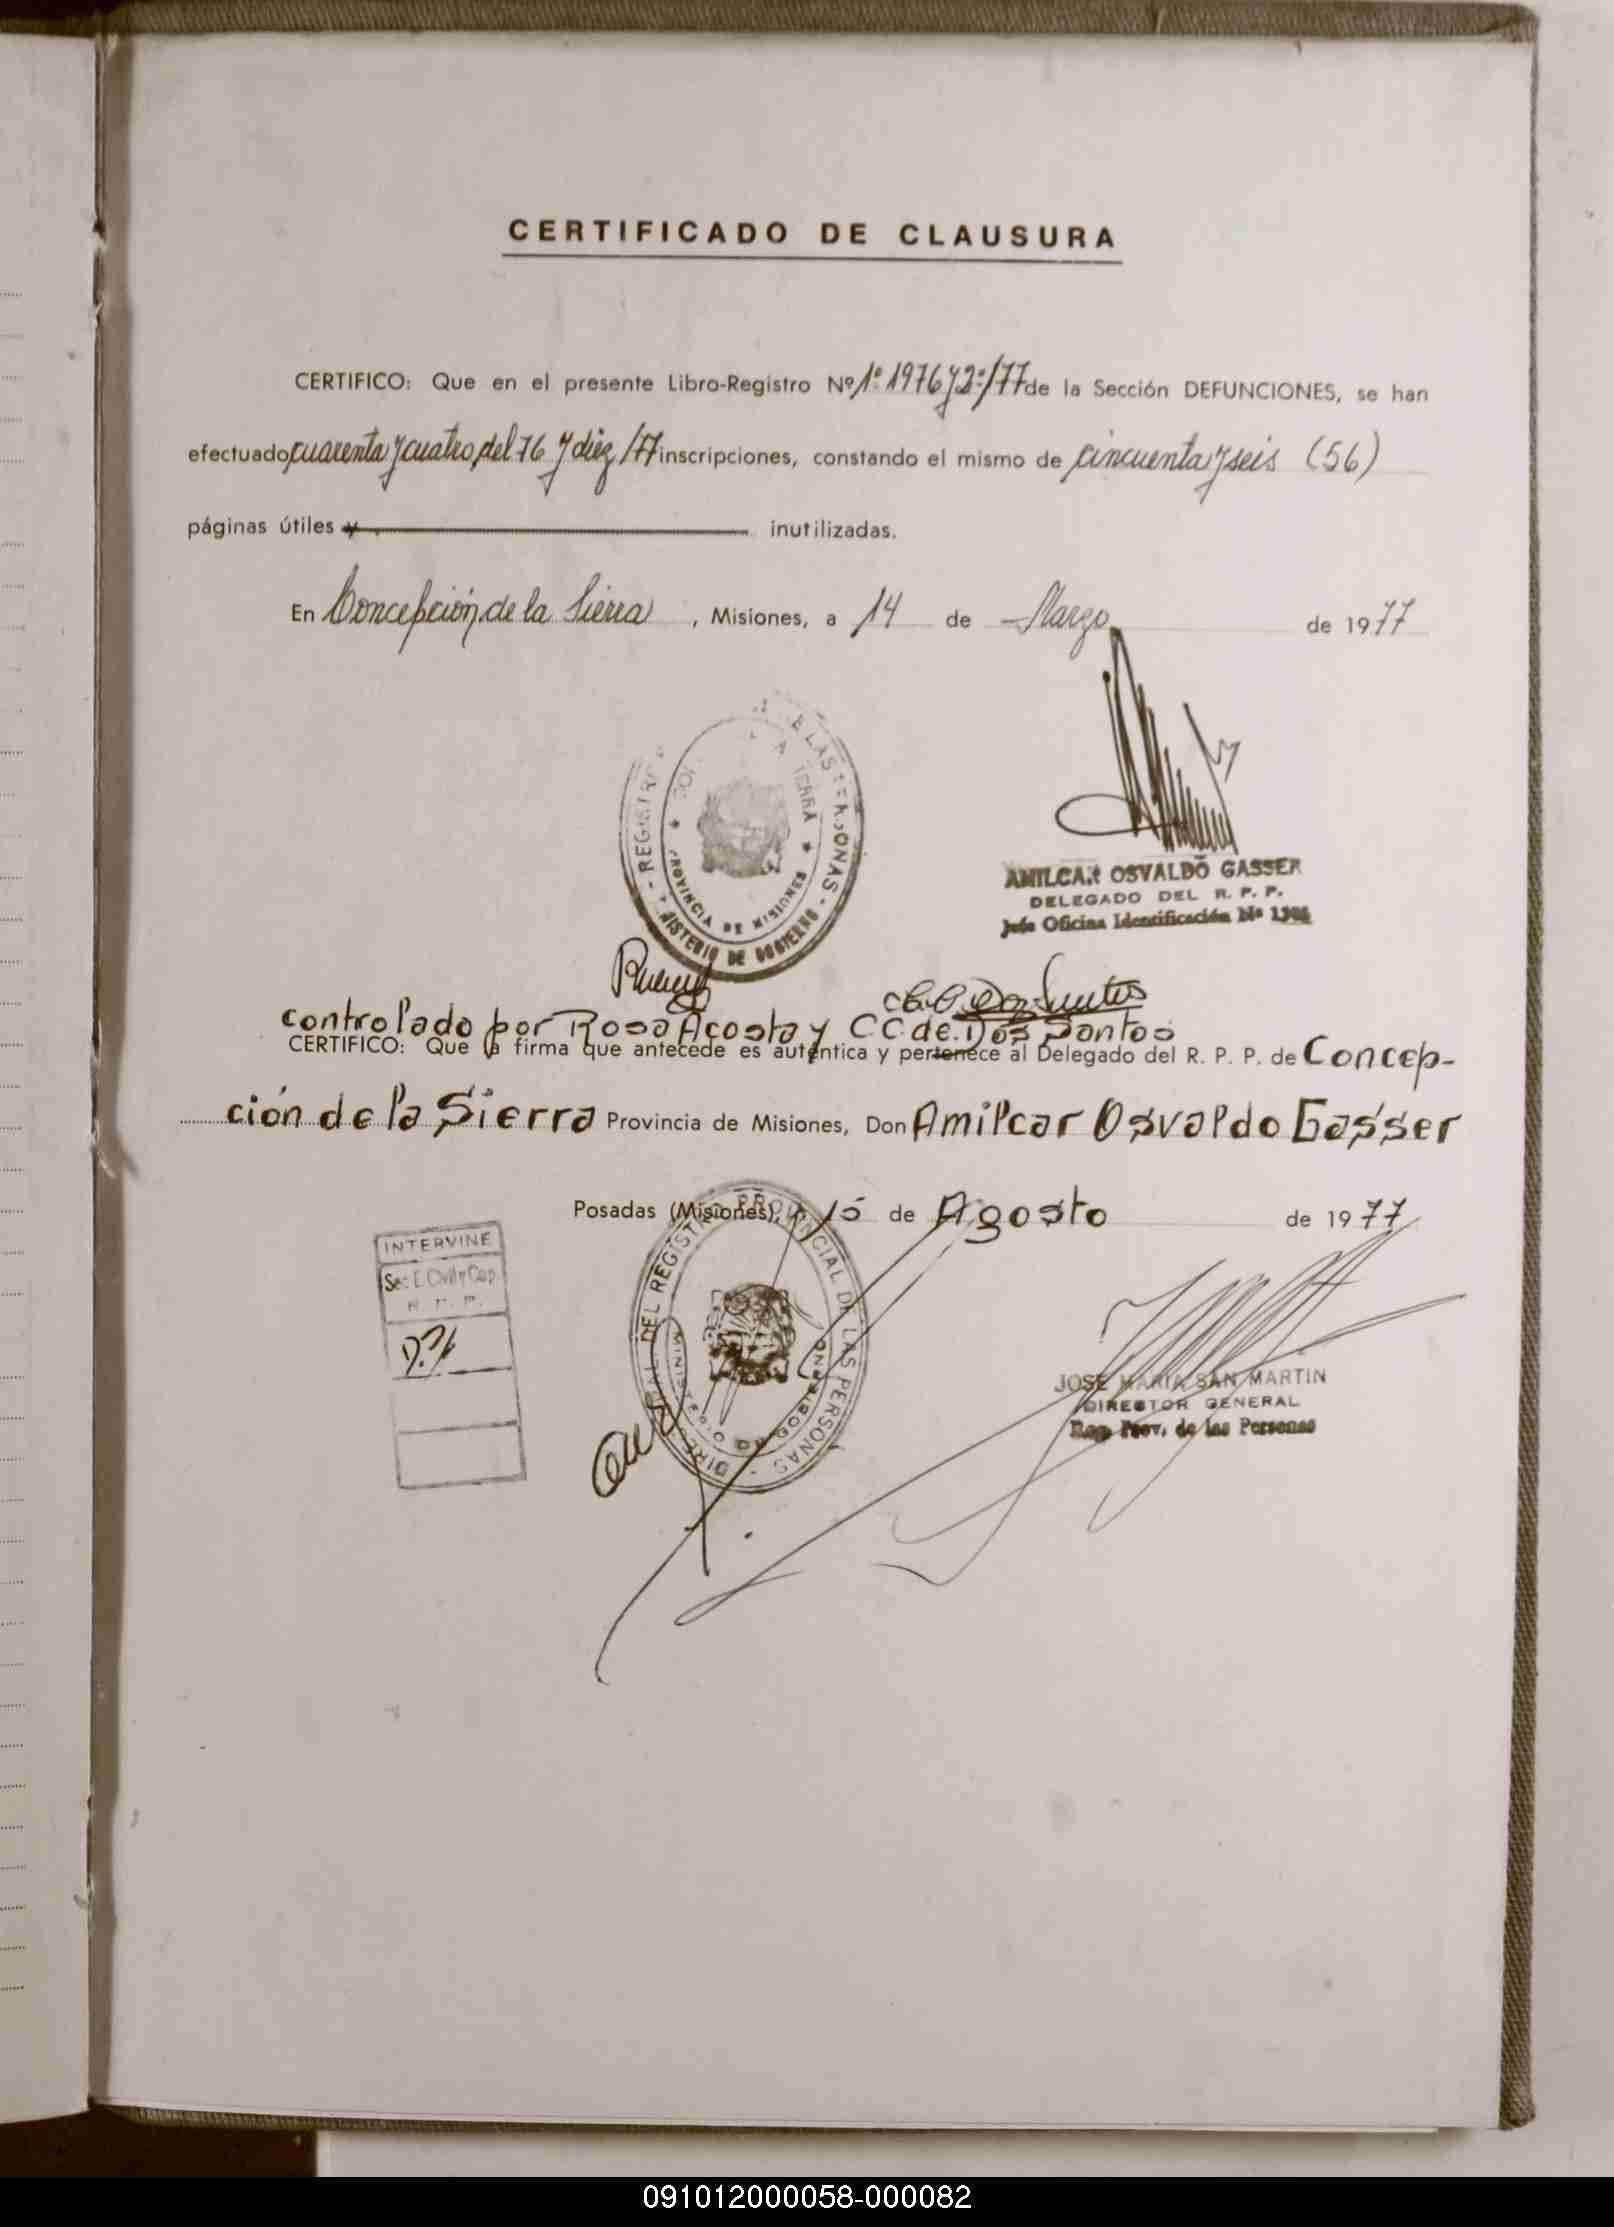 CERTIFICADO DE CLAUSURA
CERTIFICO: Que en el presente Libro-Registro Nº 1º 1976 y 2º/77 de la Sección DEFUNCIONES, se han
efectuado cuarenta y cuatro del 76 y diez /77 inscripciones, constando el mismo de cincuenta y seis (56)
páginas útiles y inutilizadas.
En Concepción de la Sierra, Misiones, a 14 de Marzo de 1977
REGISTRO DE LAS PERSONAS
SIERRA
PROVINCIA DE MISIONES
MINISTERIO DE GOBIERNO
AMILCAR OSVALDO GASSER
DELEGADO DEL R. P. P.
Jefe Oficina Identificación Nº
controlado por Rosa Acosta y C.C. de Dos Santos
CERTIFICO: Que la firma que antecede es auténtica y pertenece al Delegado del R. P. P. de Concep-
ción de la Sierra Provincia de Misiones, Don Amilcar Osvaldo Gasser
Posadas (Misiones), 15 de Agosto de 1977
INTERVINE
Sec. E. Civil y Cap.
R. P. P.
DIREC. GRAL. DEL REGISTRO PROVINCIAL DE LAS PERSONAS
MINISTERIO DE GOBIERNO
JOSE MARIA SAN MARTIN
DIRECTOR GENERAL
Reg. Prov. de las Personas
091012000058-000082